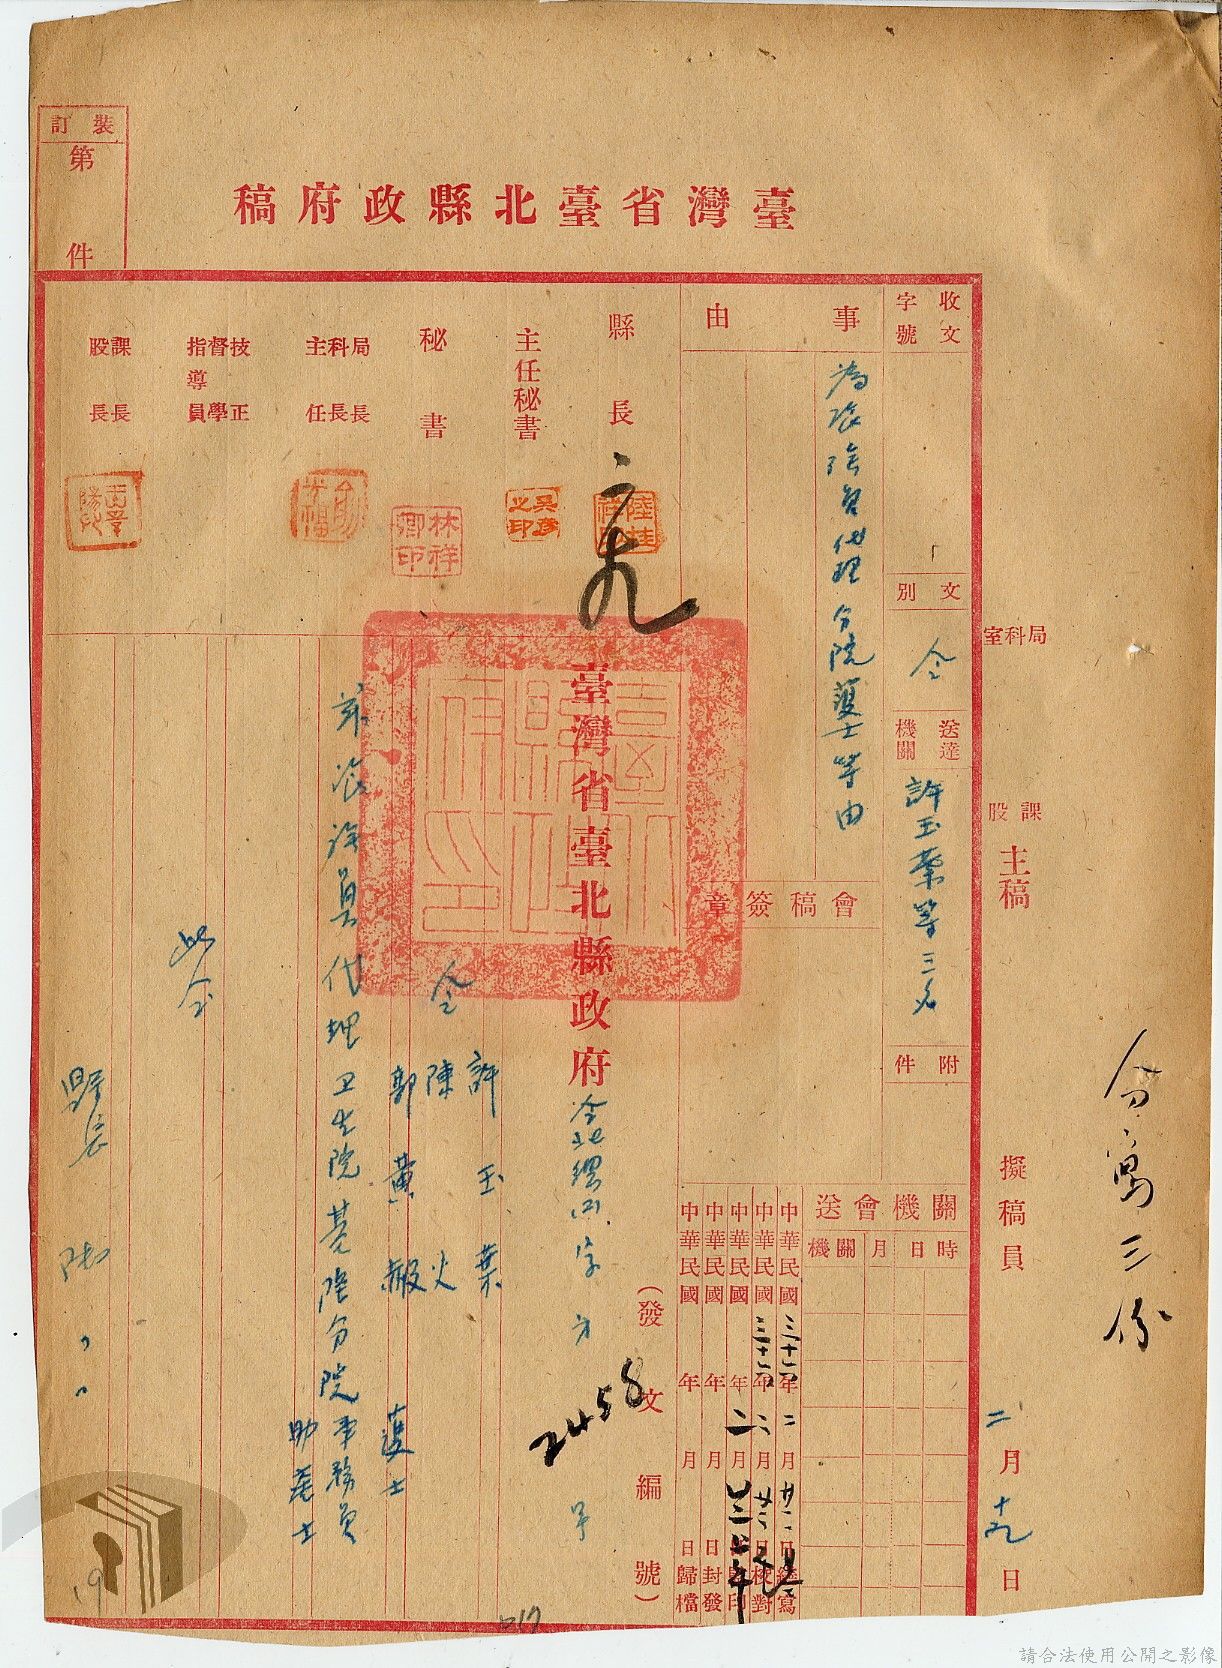 裝訂
第 件
臺灣省臺北縣政府稿
局科室
課股
主稿
擬稿員
二月十九日
分寫三份
收文
字號
文別
令
送達
機關
許玉葉等三名
附件
事由
為派該員代理分院護士等由
會稿簽章
關機會送
時日月關機
中華民國三十六年二月廿二日繕寫
中華民國三十六年二月廿二日校對
中華民國 年二月 日 印
中華民國 年 月 日封發
中華民國 年 月 日歸檔
(發文編號)
2458
縣長
主任秘書
秘書
局長
科長
主任
技正
督學
指導員
課長
股長
林祥卿印
吳彥之印
臺灣省臺北縣政府
字 號
令
許玉葉
陳火
郭黃赧
護士
茲派該員代理卫生院基隆分院事務員
助產士
此令
縣長 陸、、
017
19
請合法使用公開之影像